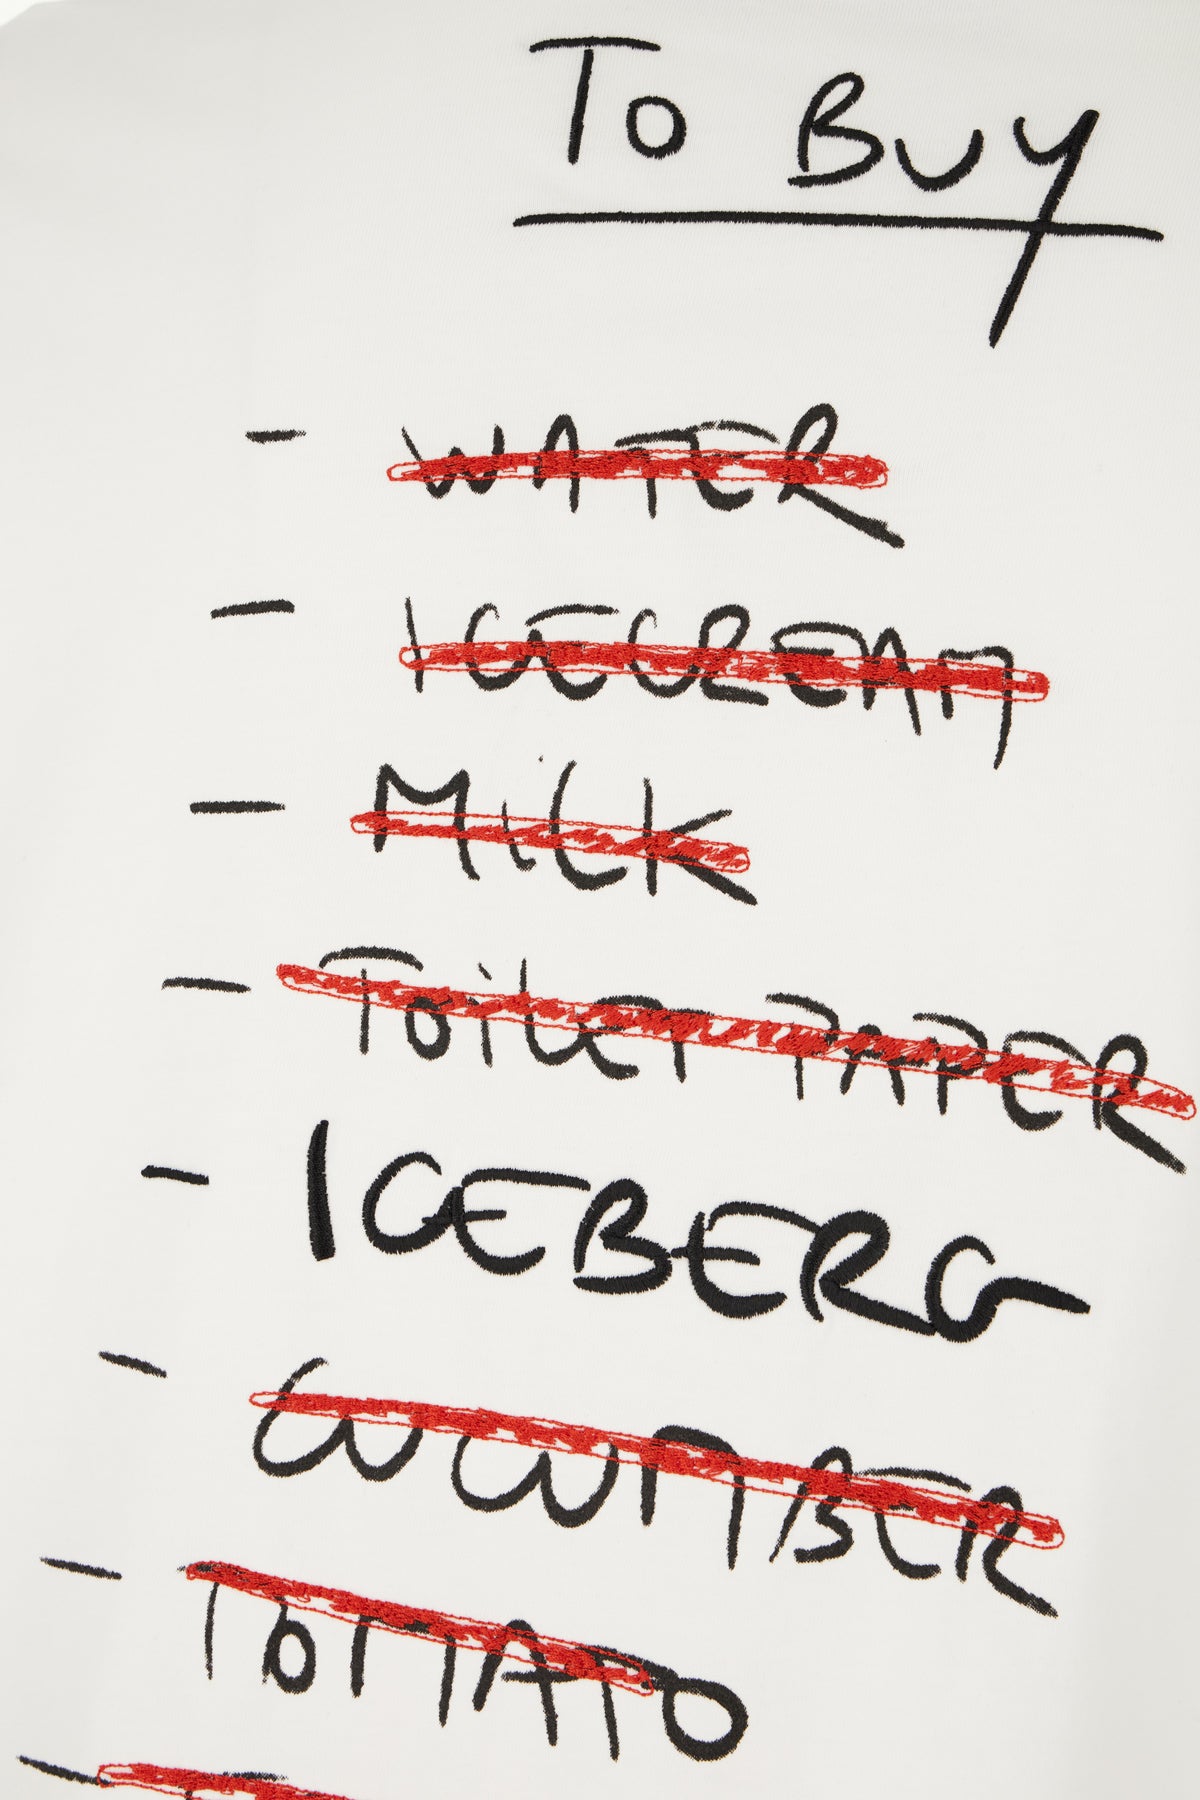 To Buy
- WATER
- ICECREAM
- MilK
- ToileT PAPER
- ICEBERG
- CUCUMBER
- ToMATO
-